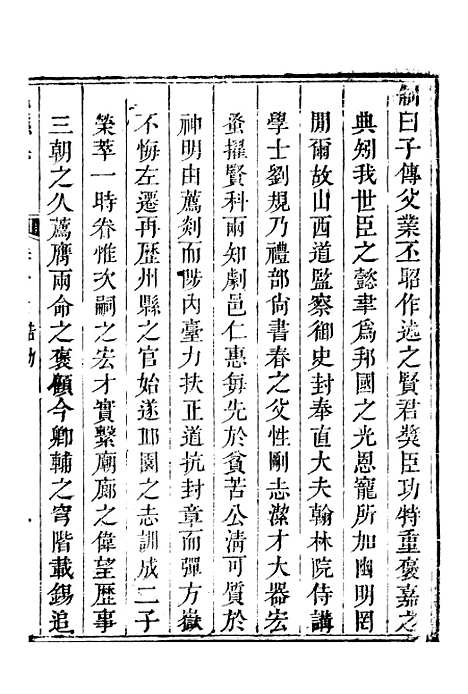 制曰子傳父業丕昭作述之賢君奬臣功特重褒嘉之
典矧我世臣之懿聿爲邦國之光恩寵所加幽明罔
閒爾故山西道監察御史封奉直大夫翰林院侍講
學士劉規乃禮部尙書春之父性剛志潔才大器宏
蚤擢賢科兩知劇邑仁惠每先於貧苦公淸可質於
神明由薦剡而陟內臺力扶正道抗封章而彈方嶽
不悔左遷再歷州縣之官始遂丘園之志訓成二子
榮萃一時眷惟次嗣之宏才實繫廟廊之偉望歷事
三朝之久薦膺兩命之褒顧今卿輔之穹階載錫追